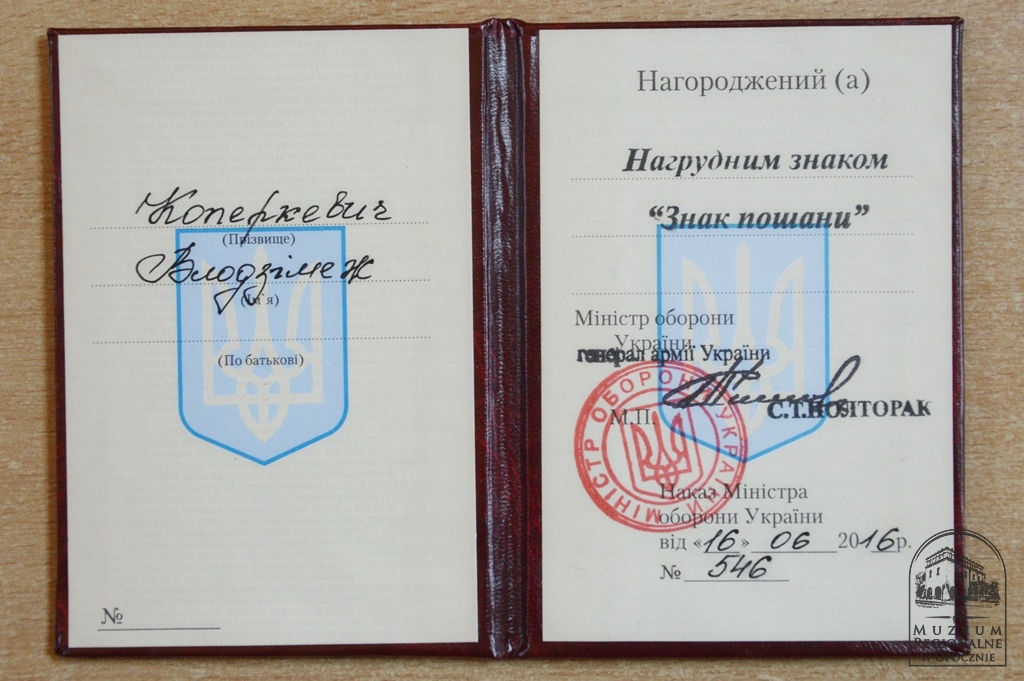 Коперкевич
(Прізвище)
Влодзімеж
(Ім'я)
(По батькові)
№
Нагороджений (а)
Нагрудним знаком
“Знак пошани”
Міністр оборони
України
генерал армії України
М.П.
С.Т.ПОЛТОРАК
МІНІСТР ОБОРОНИ УКРАЇНИ
Наказ Міністра
оборони України
від «16» 06 2016р.
№ 546
MUZEUM
REGIONALNE
W OTOCZNIE